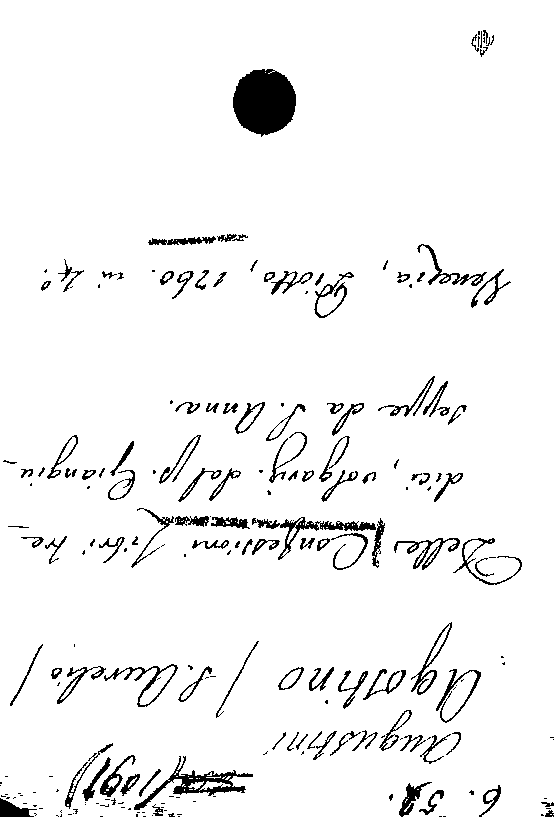 6. 52. (1091)
Augustini
Agostino / S. Aurelio /
Delle Confessioni libri tre-
dici, volgariz. dal p. Giangiu-
seppe da S. Anna.
Venezia, Pitteri, 1760. in 4º.